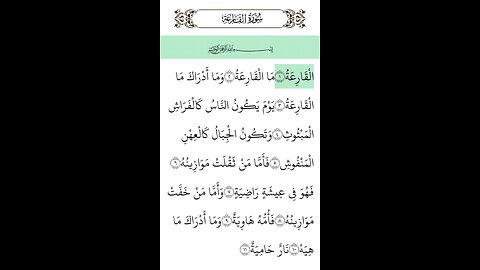 سُورَةُ القَارِعَةِ
بِسْمِ اللَّهِ الرَّحْمَٰنِ الرَّحِيمِ
الْقَارِعَةُ ۝١ مَا الْقَارِعَةُ ۝٢ وَمَا أَدْرَاكَ مَا
الْقَارِعَةُ ۝٣ يَوْمَ يَكُونُ النَّاسُ كَالْفَرَاشِ
الْمَبْثُوثِ ۝٤ وَتَكُونُ الْجِبَالُ كَالْعِهْنِ
الْمَنْفُوشِ ۝٥ فَأَمَّا مَنْ ثَقُلَتْ مَوَازِينُهُ ۝٦
فَهُوَ فِي عِيشَةٍ رَاضِيَةٍ ۝٧ وَأَمَّا مَنْ خَفَّتْ
مَوَازِينُهُ ۝٨ فَأُمُّهُ هَاوِيَةٌ ۝٩ وَمَا أَدْرَاكَ مَا
هِيَهْ ۝١٠ نَارٌ حَامِيَةٌ ۝١١